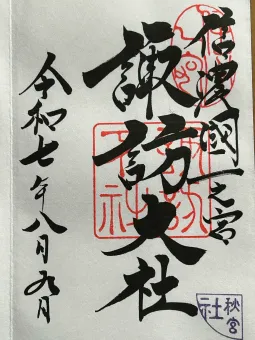 信濃國一之宮
諏訪大社
令和七年八月九日
秋宮
社